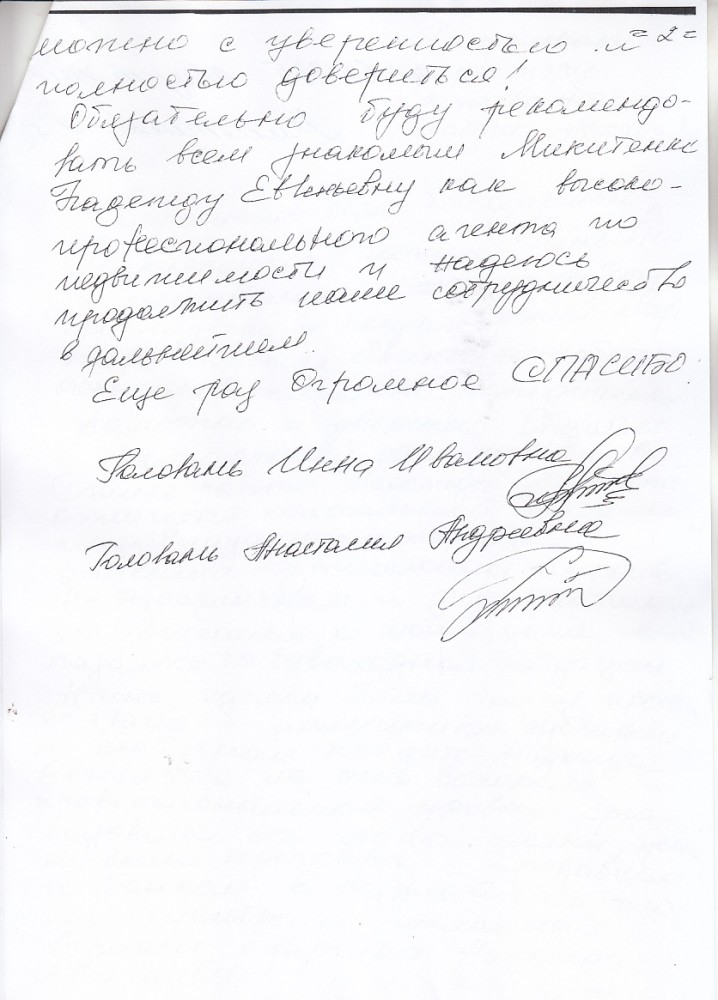 можно с уверенностью и =2=
полностью довериться!
Обязательно буду рекомендо-
вать всем знакомым Микитенко
Надежду Евгеньевну как высоко-
профессионального агента по
недвижимости и надеюсь
продолжить наше сотрудничество
в дальнейшем.
Еще раз Огромное СПАСИБО.
Головань Инна Ивановна
Головань Анастасия Андреевна